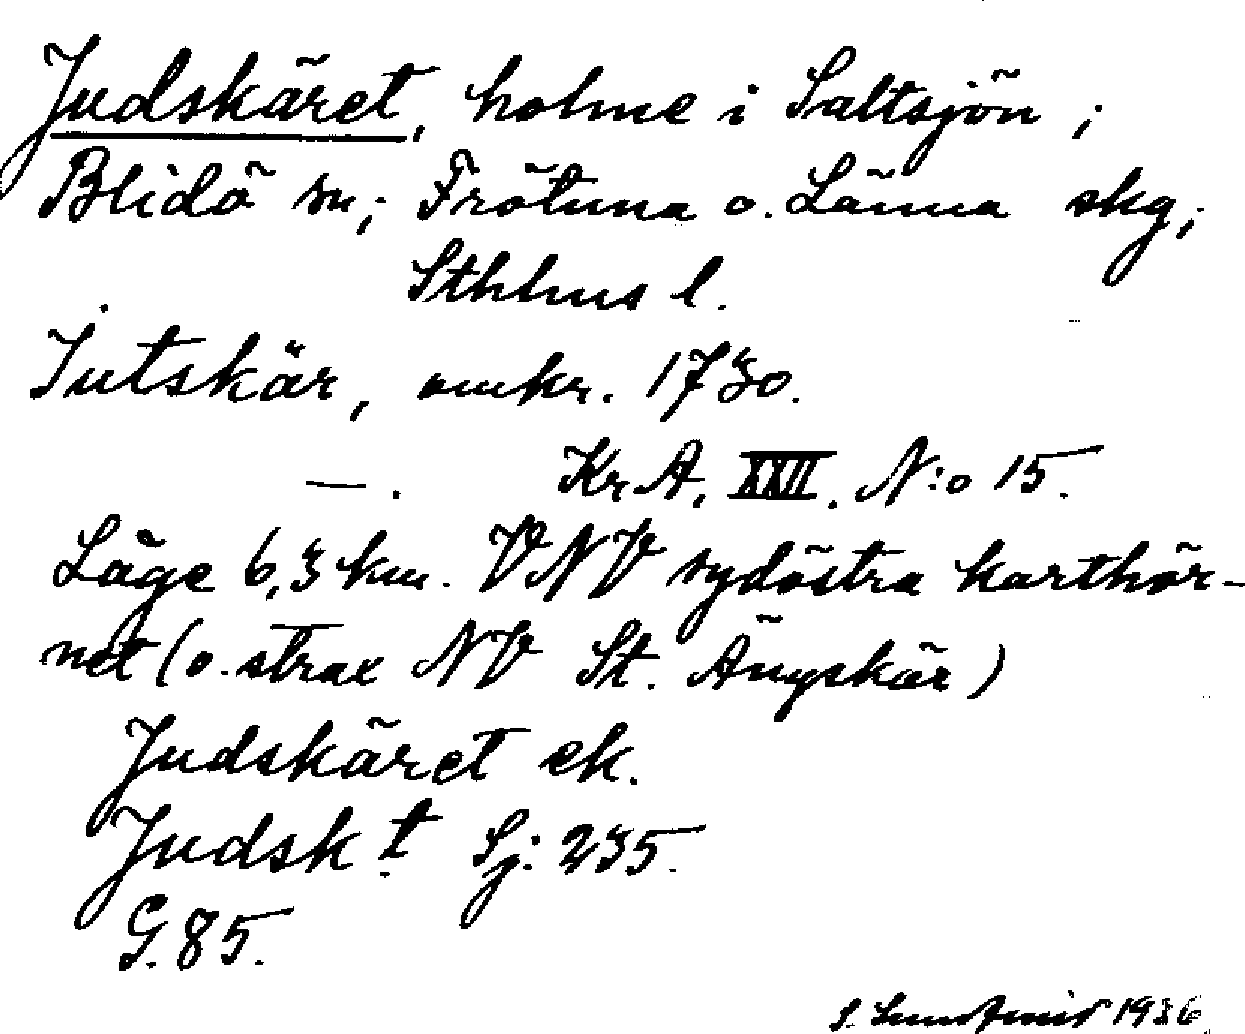 Judskäret, holme i Saltsjön;
Blidö sn; Frötuna o. Länna skg;
Sthlms l.
Jutskär, omkr. 1730.
—. Kr A, XXII. N:o 15.
Läge 6,3 km. VNV sydöstra karthör-
net (o. strax NV St. Ängskär)
Judskäret ek.
Judsk:t Sj: 235.
G. 85.
S. 1936.